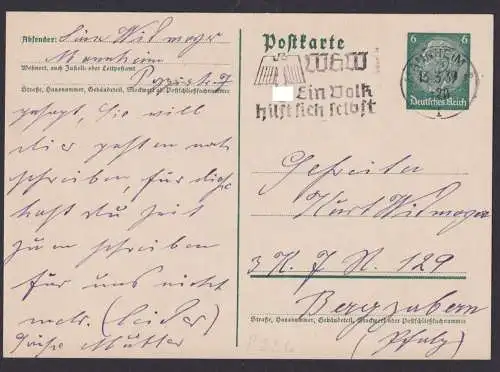 Absender: Lina Wilmager
Mannheim
Wohnort, auch Zustell- oder Leitpostamt
Straße, Hausnummer, Gebäudeteil, Stockwerk od. Postschließfachnummer
gesagt, Sie will
dir gestern noch
schreiben, für dich
hast du Zeit
zum schreiben
für uns nicht
mehr. (leider)
Mutter
Postkarte
WHW
Ein Volk
hilft sich selbst
MANNHEIM 2
-20
1
6 6
Deutsches Reich
Gefreiter
Kurt Wilmager
3 K. J. R. 129
Bergzabern
Straße, Hausnummer, Gebäudeteil, Stockwerk oder Postschließfachnummer
(Pfalz)